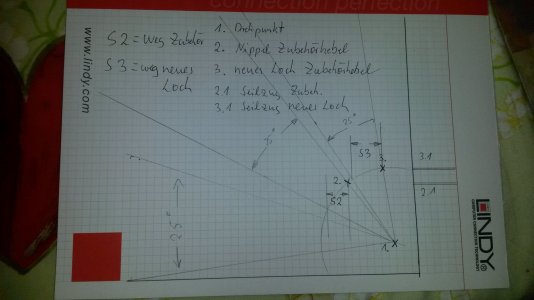 connection perfection
S2 = Weg Zubehör
S3 = weg neues
Loch
1. Drehpunkt
2. Nippel Zubehörhebel
3. neues Loch Zubehörhebel
2.1 Seilzug Zubeh.
3.1 Seilzug neues Loch
www.lindy.com
25°
25°
S3
3.
3.1
2.
S2
2.1
1.
LINDY